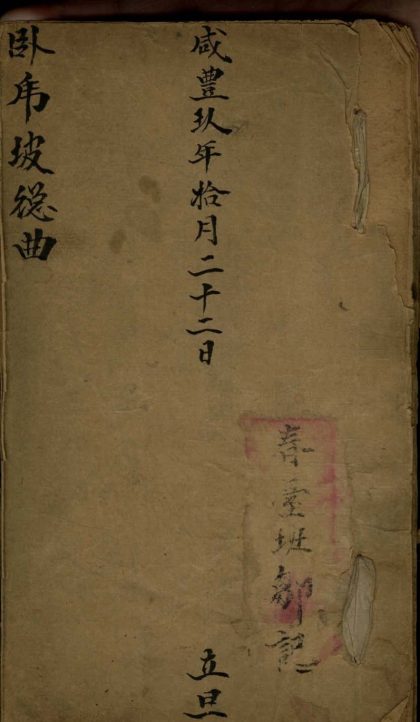 咸豐玖年拾月二十二日
立旦
春臺班鄒記
卧虎坡總曲